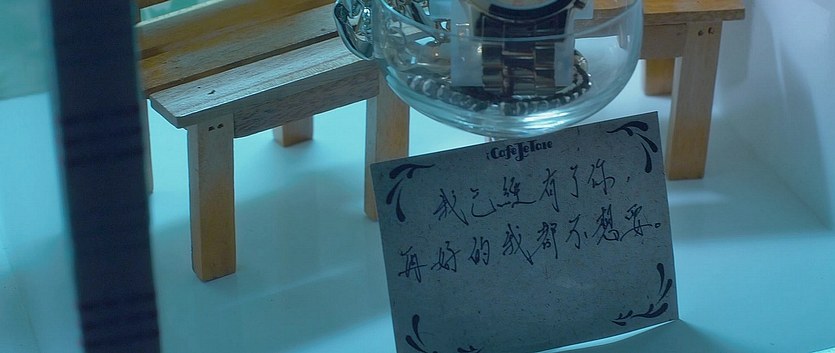 Cafe JeTaie
我已經有了你,
再好的我都不想要。